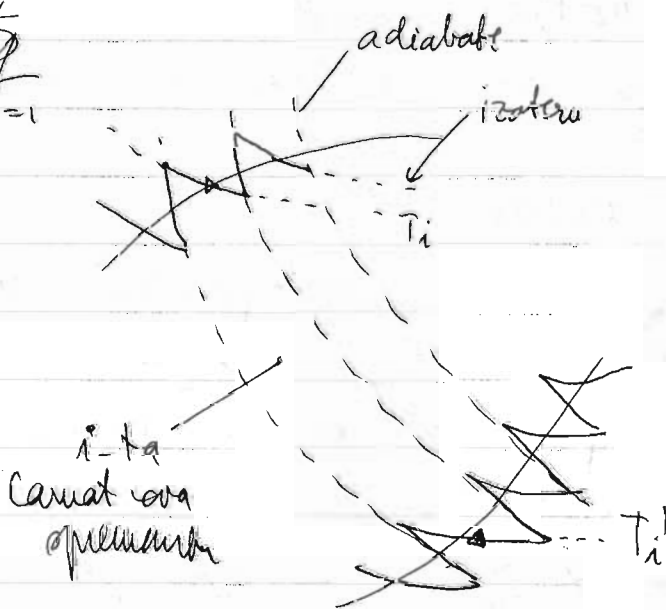 =1
adiabat
izoterm
Ti
i-ta
Carnot ova
Ti'